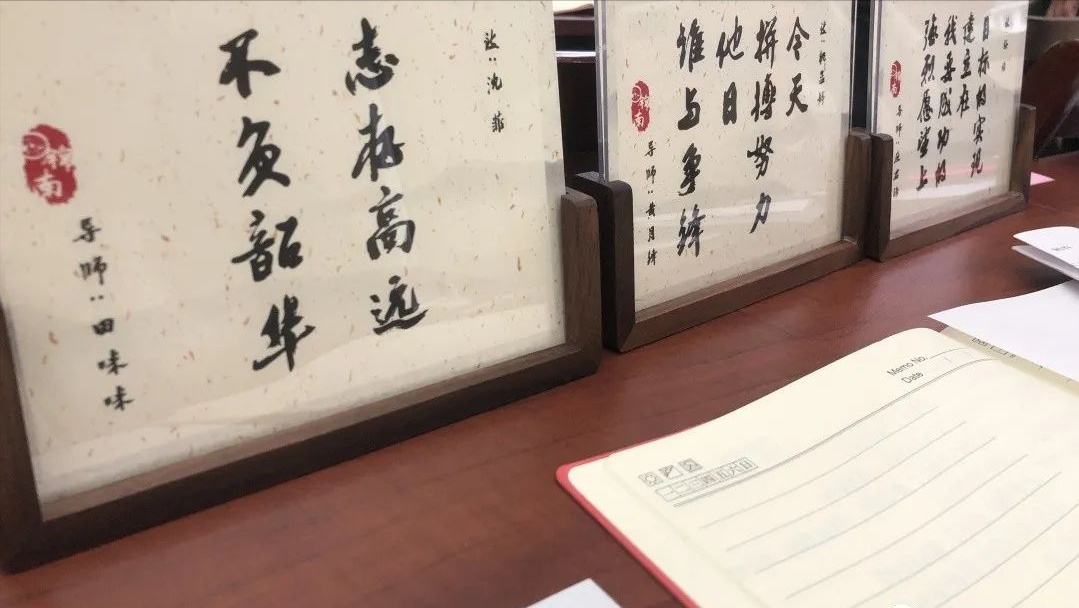 让:沈菲
志存高远
不负韶华
锦南
导师:田味味
今天
拼搏努力
他日
谁与争锋
南
导师:黄月锋
目标的实现
建立在
我要成功的
强烈愿望上
导师:
Memo No.
Date
一二三四五六日